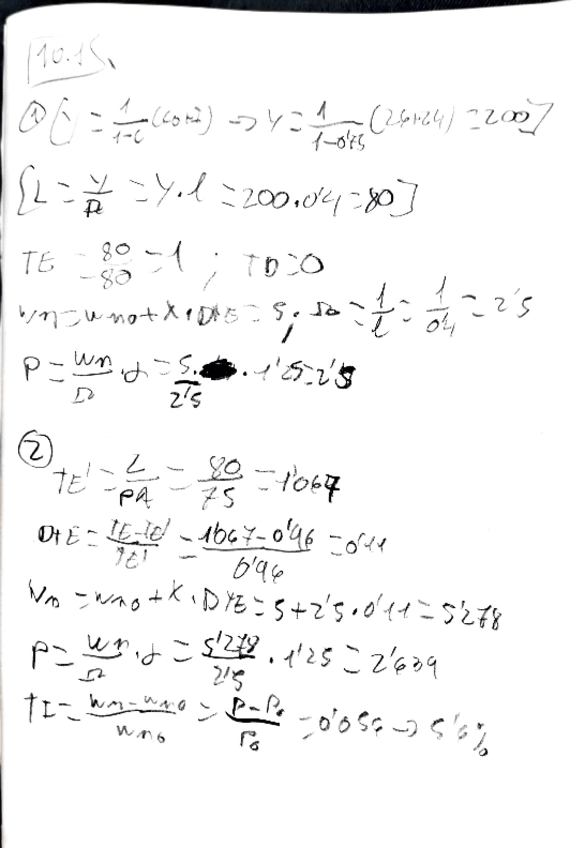 10.15.
① [Y = 1/(1-c) (C0+I) → Y = 1/(1-0'75) (26+24) = 200]
[L = Y/Ω = Y·l = 200·0'4 = 80]
TE = 80/80 = 1 ; TD = 0
wn = wn0 + X·DtE = 5; Ω = 1/l = 1/0'4 = 2'5
P = wn/Ω · α = 5/2'5 · 1'25 = 2'5
②
TE' = L/PA = 80/75 = 1'067
DtE = (TE-TE')/TE' = (1067-0'96)/0'96 = 0'11
Wn = wn0 + X·DtE = 5+2'5·0'11 = 5'278
P = wn/Ω · α = 5'278/2'5 · 1'25 = 2'639
TI = (wn-wn0)/wn0 = (P-P0)/P0 = 0'056 → 5'6%